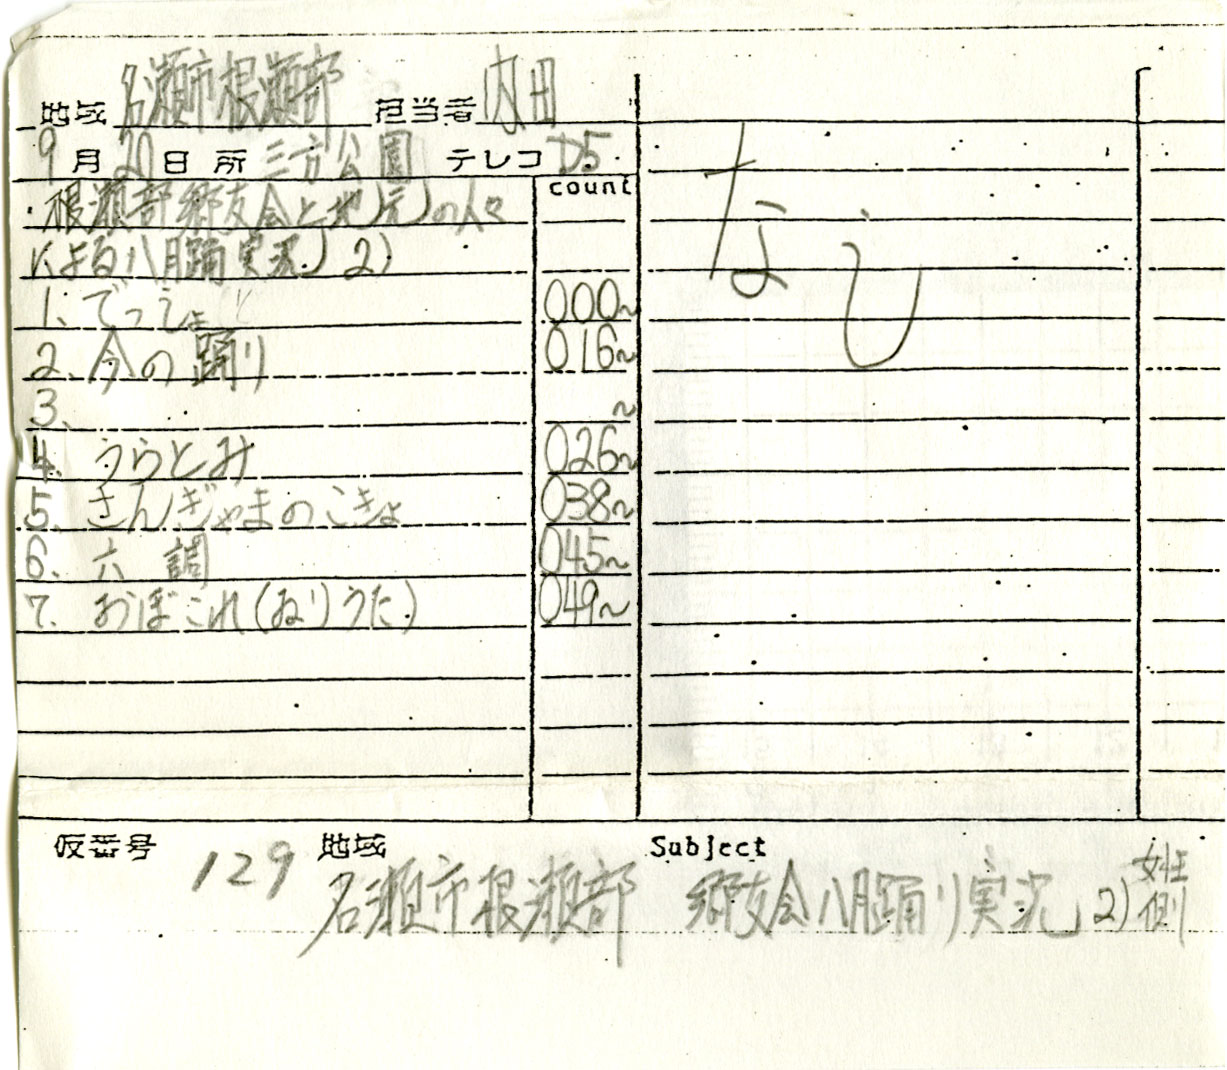 地域 名瀬市根瀬部 担当者 内田
9月20日 所 三方公園 テレコ D5
count
・根瀬部郷友会と地元の人々
による八月踊実況 2)
1、でっしょ 000~
2、今の踊り 016~
3、 ~
4、うらとみ 026~
5、さんぎゃまのこきょ 038~
6、六調 045~
7、おぼこれ(ねりうた) 049~
なし
仮番号 129 地域 名瀬市根瀬部 Subject 郷友会八月踊り実況 2) 女性側